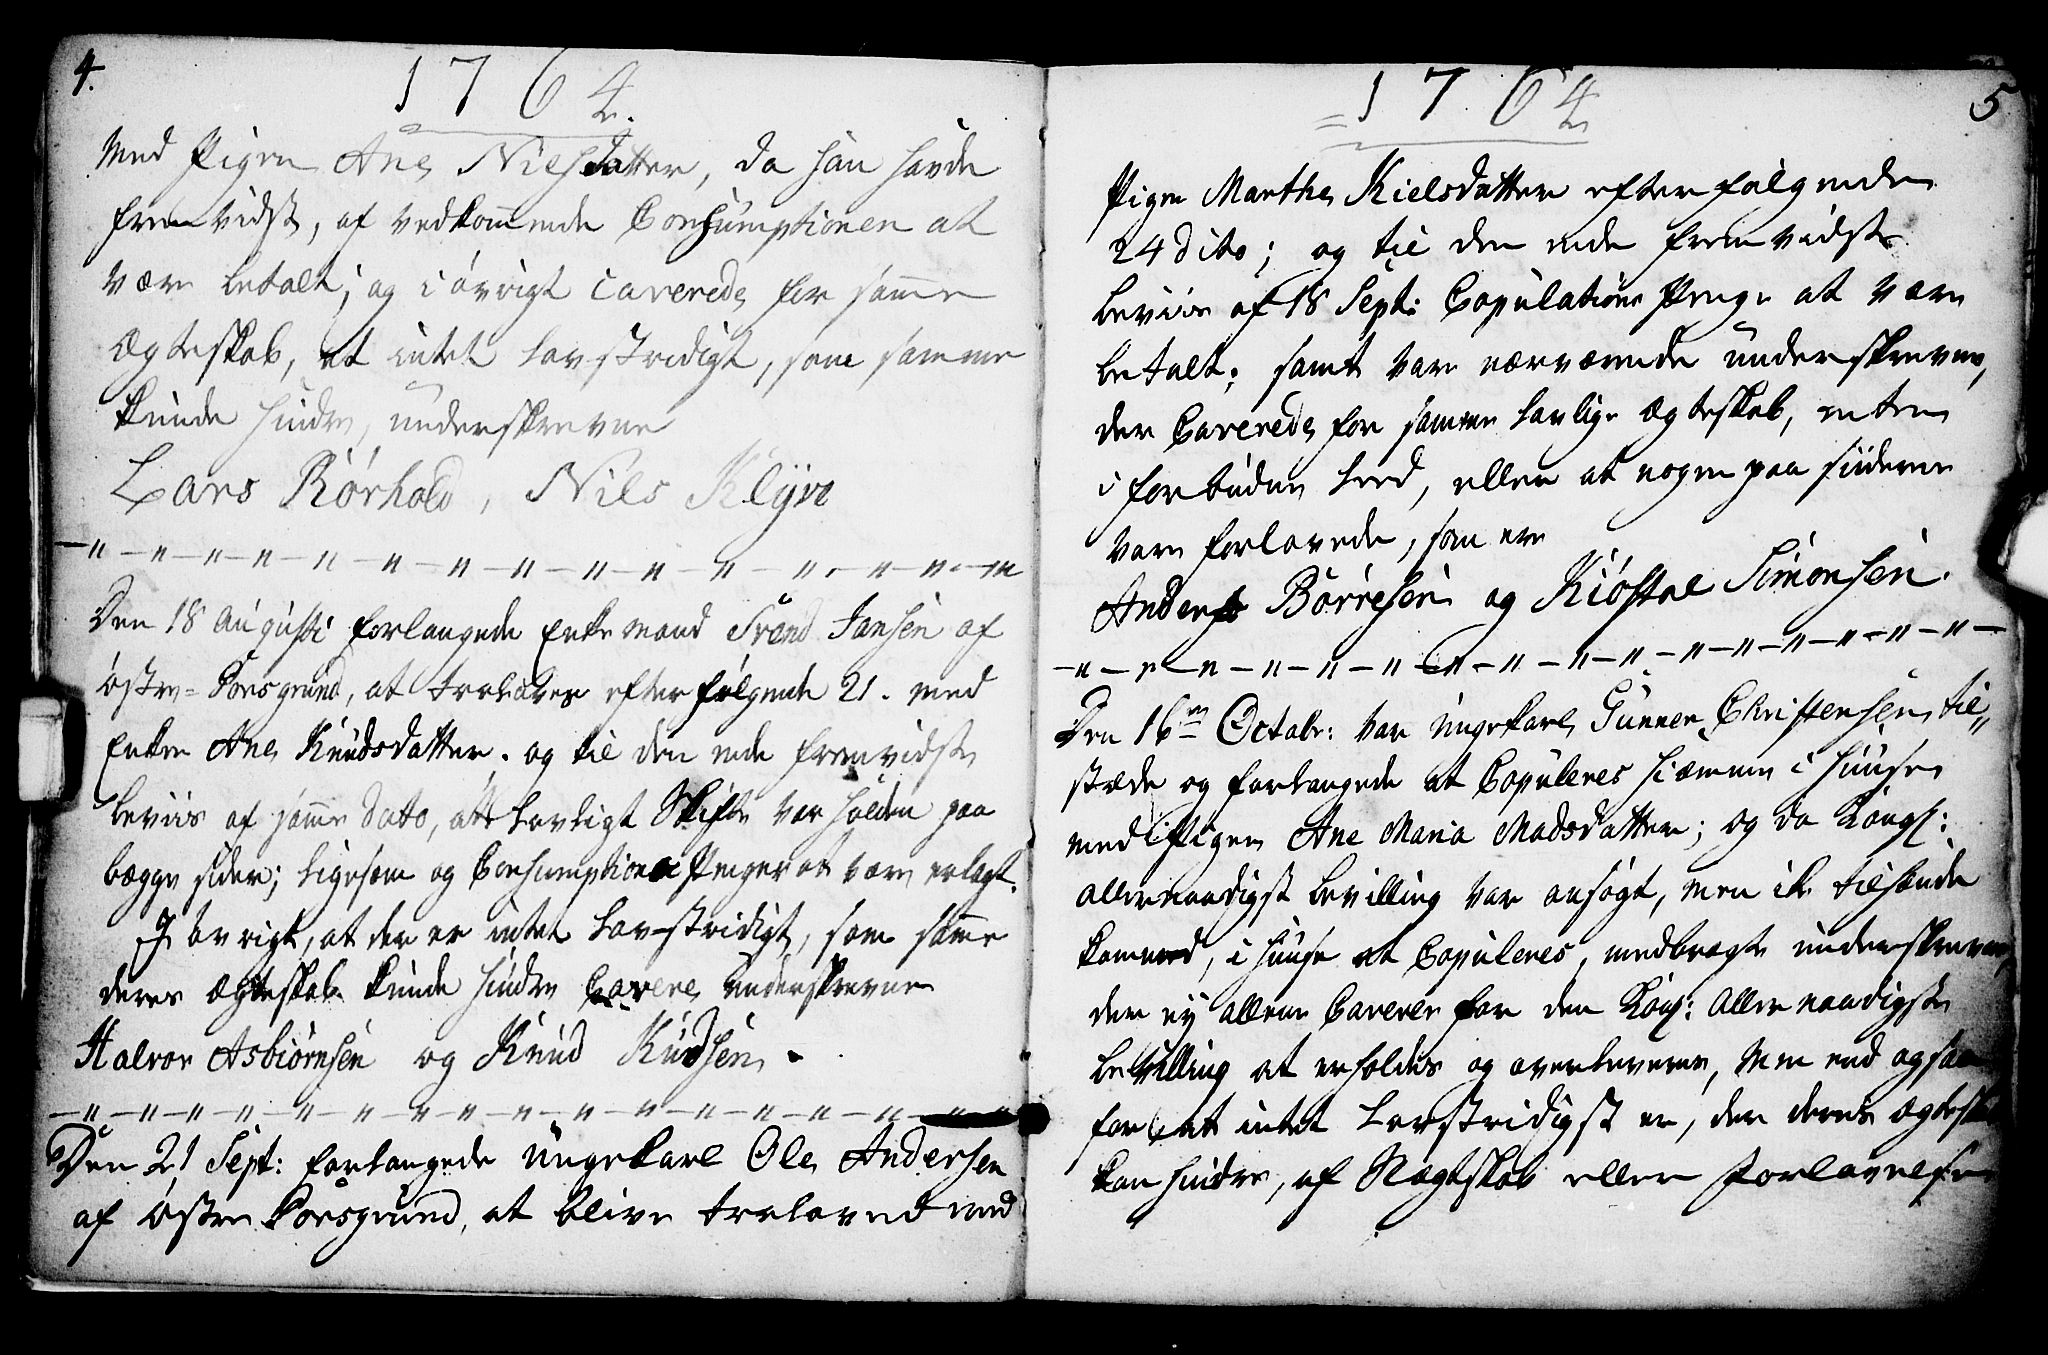 4.
1764.
Med Pigen Ane Nielsdatter, da han havde
fremvidst, af vedkommende Consumptionen at
være betalt; og i øvrigt caverede for samme
Ægteskab, at intet lovstridigt, som samme
kunde hindre, underskrevne
Lars Rørhold, Nils Klyve
Den 18 Augusti forlangede Enkemand Trond Jansen af
østre-Porsgrund, at troloves efterfølgende 21. med
Enken Ane Knudsdatter. og til den ende fremvidste
beviis af samme Dato, at lovligt Skifte var holden paa
begge sider; ligesom og Consumptions Penger at være erlagt.
I øvrigt, at der er intet lov-stridigt, som samme
deres ægteskab kunde hindre Cavere underskrevne
Halvor Asbiørnsen og Knud Knudsen.
Den 21 Sept: forlangede Ungekarl Ole Andersen
af østre Porsgrund, at blive trolovet med
1764
5
Pigen Marthe Kielsdatter efterfølgende
24 dito; og til den ende fremvidste
beviis af 18 Sept: Copulations Penge at være
betalt; samt var nærværende underskrevne,
der Caverede for samme lovlige Ægteskab, enten
i forbuden Leed, eller at nogen paa siiderne
vare forlovede, som ere
Anders Børresen og Kiøstol Simonsen.
Den 16n Octobr: var Ungekarl Gunner Christensen til„
stæde og forlangede at Copuleres hiemme i Huuse
med Pigen Ane Maria Madsdatter; og da Kongl:
allernaadigst bevilling var ansøgt, men ik tilhænde
kommed, i Huuse at Copuleres, medbragte underskrevne,
der ey allene Caverer for den Kong: allernaadigste
bevilling at erholdes og overleveres, men end ogsaa
for at intet lovstridigst er, der deres ægteskab
kan hindre, af Slægtskab eller Forlovelse